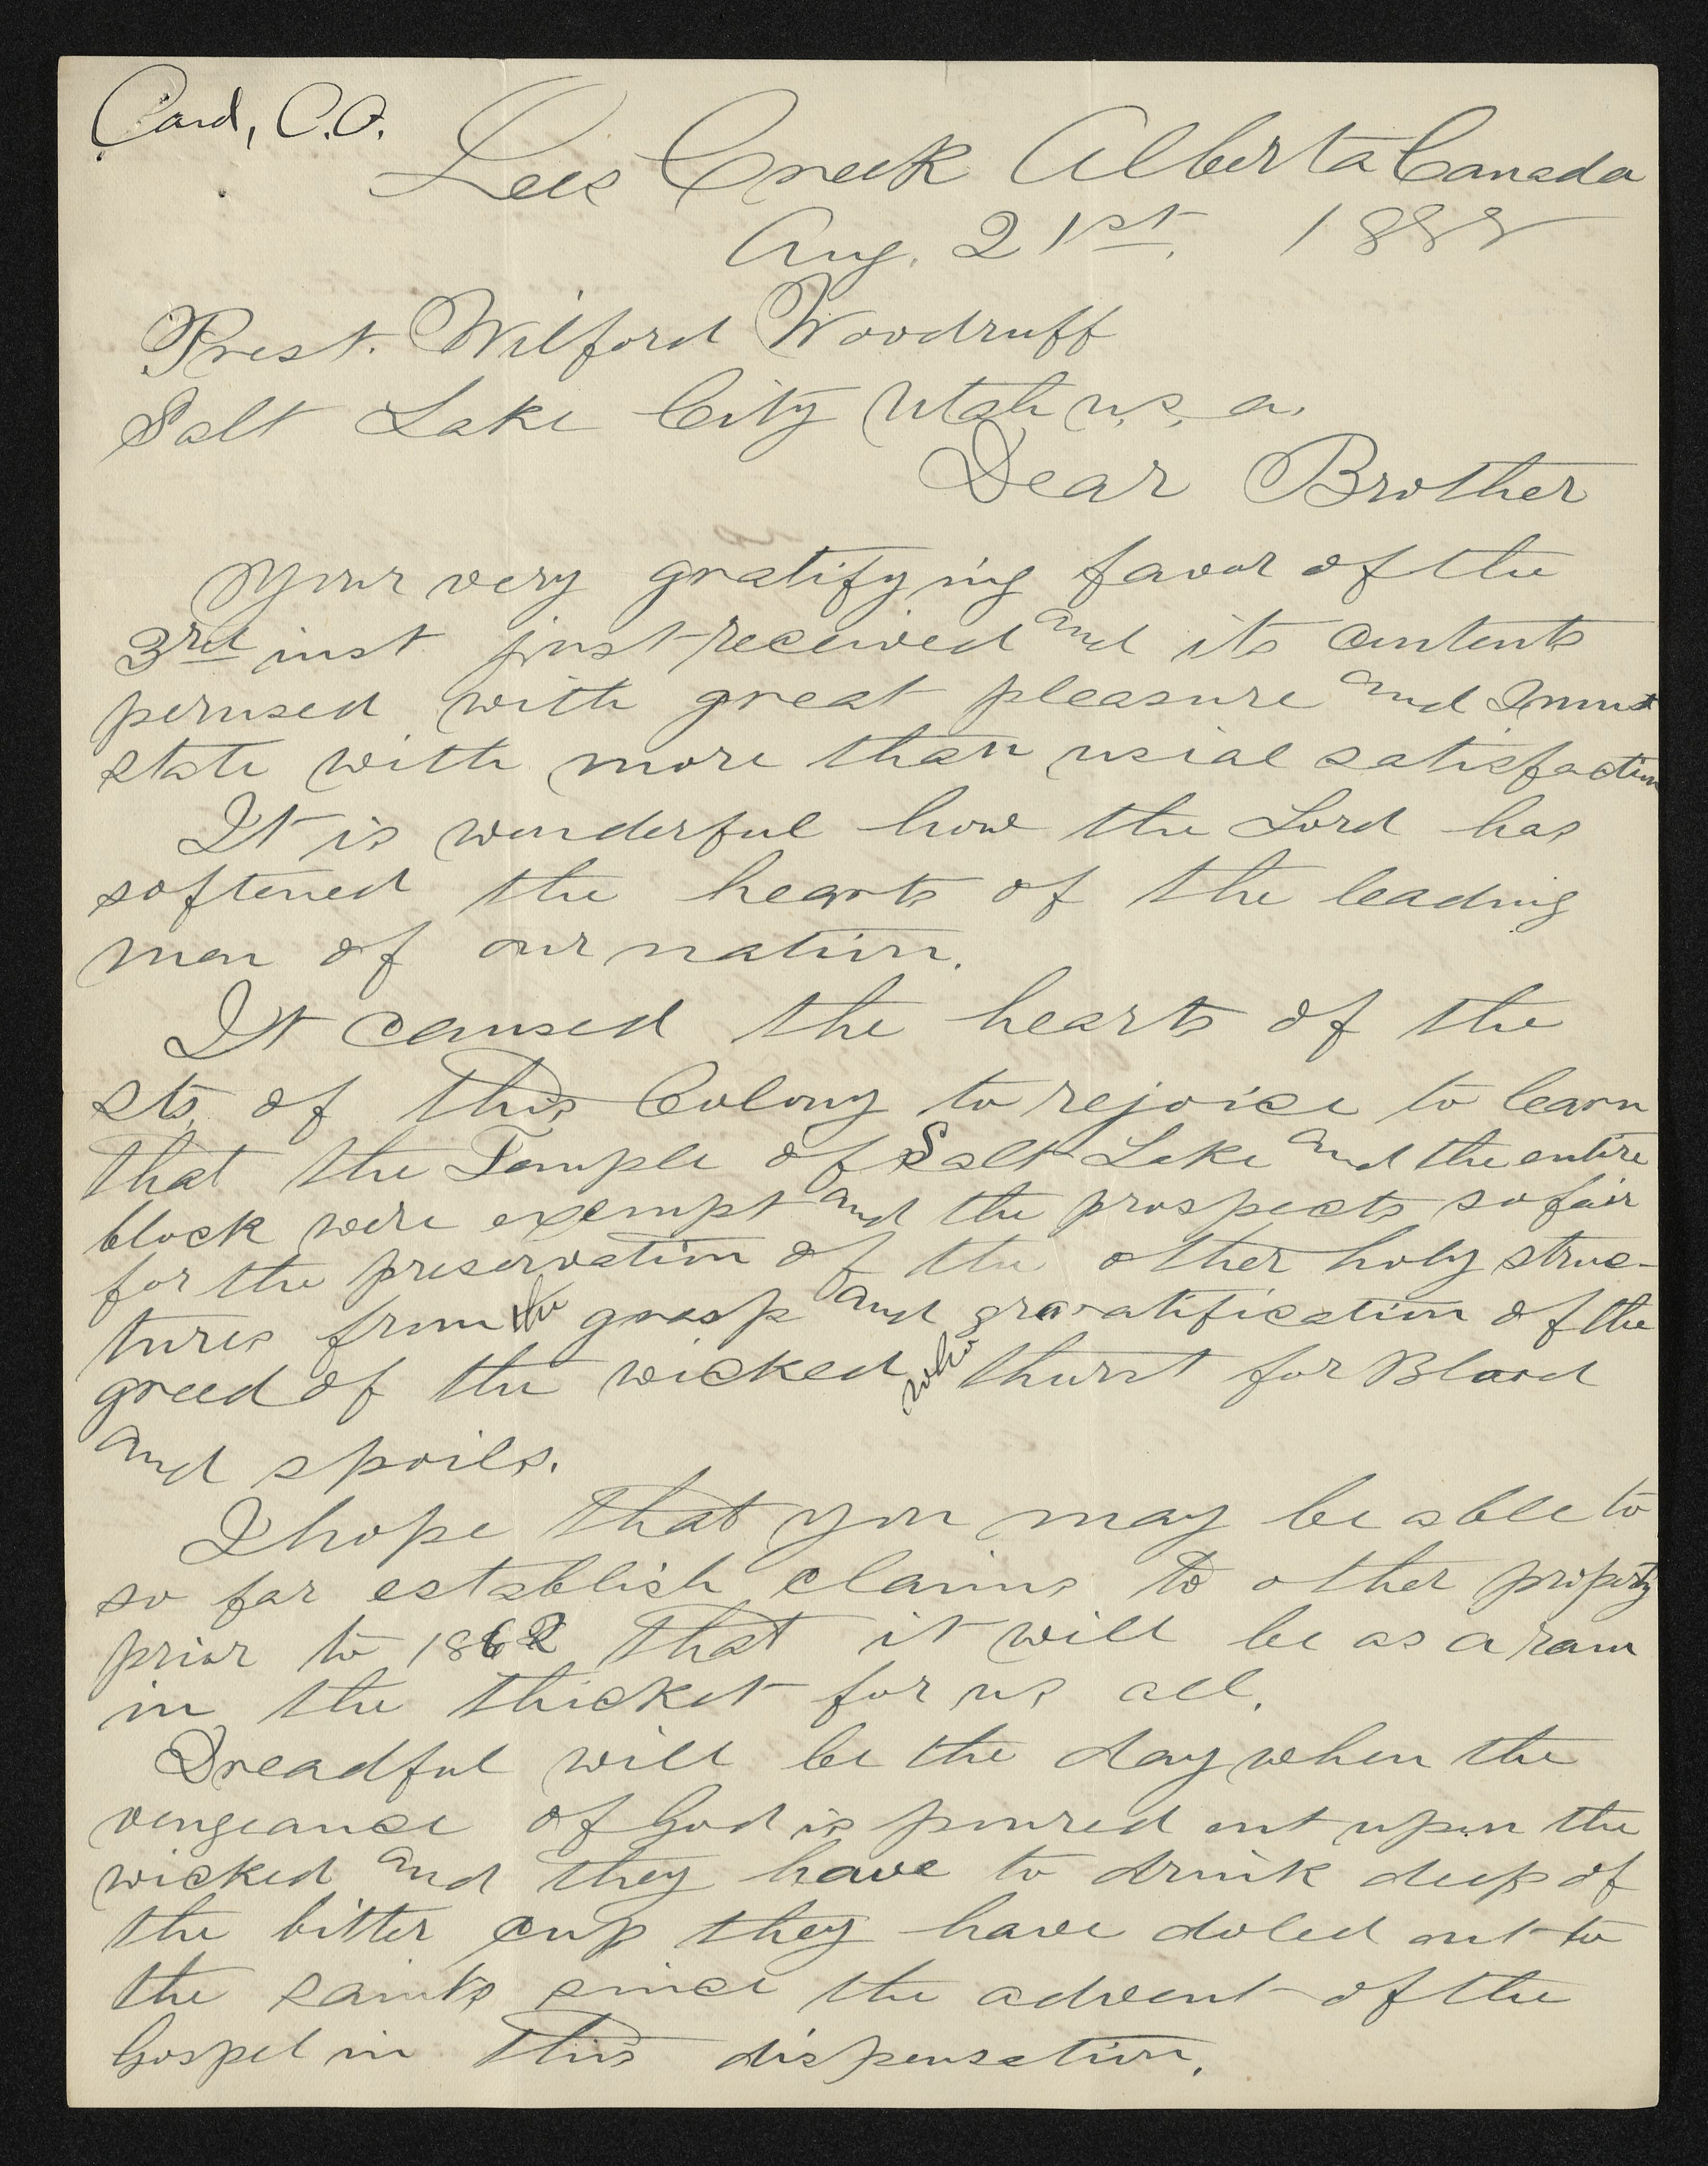 Card, C.O.
Lees Creek Alberta Canada
Aug. 21st. 1888
Prest. Wilford Woodruff
Salt Lake City Utah U.S.A.
Dear Brother
Your very gratifying favor of the
3rd inst just received and its contents
perused with great pleasure and I must
state with more than usial satisfaction
It is wonderful how the Lord has
softened the hearts of the leading
men of our nation.
It caused the hearts of the
sts. of this Colony to rejoice to learn
that the Temple of Salt Lake and the entire
block were exempt and the prospects so fair
for the preservation of the other holy struc-
tures from the grasp and gratification of the
greed of the wicked who thurst for Blood
and spoils.
I hope that you may be able to
so far establish claims to other property
prior to 1862 that it will be as a ram
in the thicket for us all.
Dreadful will be the day when the
vengeance of God is poured out upon the
wicked and they have to drink deep of
the bitter cup they have doled out to
the saints since the advent of the
Gospel in this dispensation.